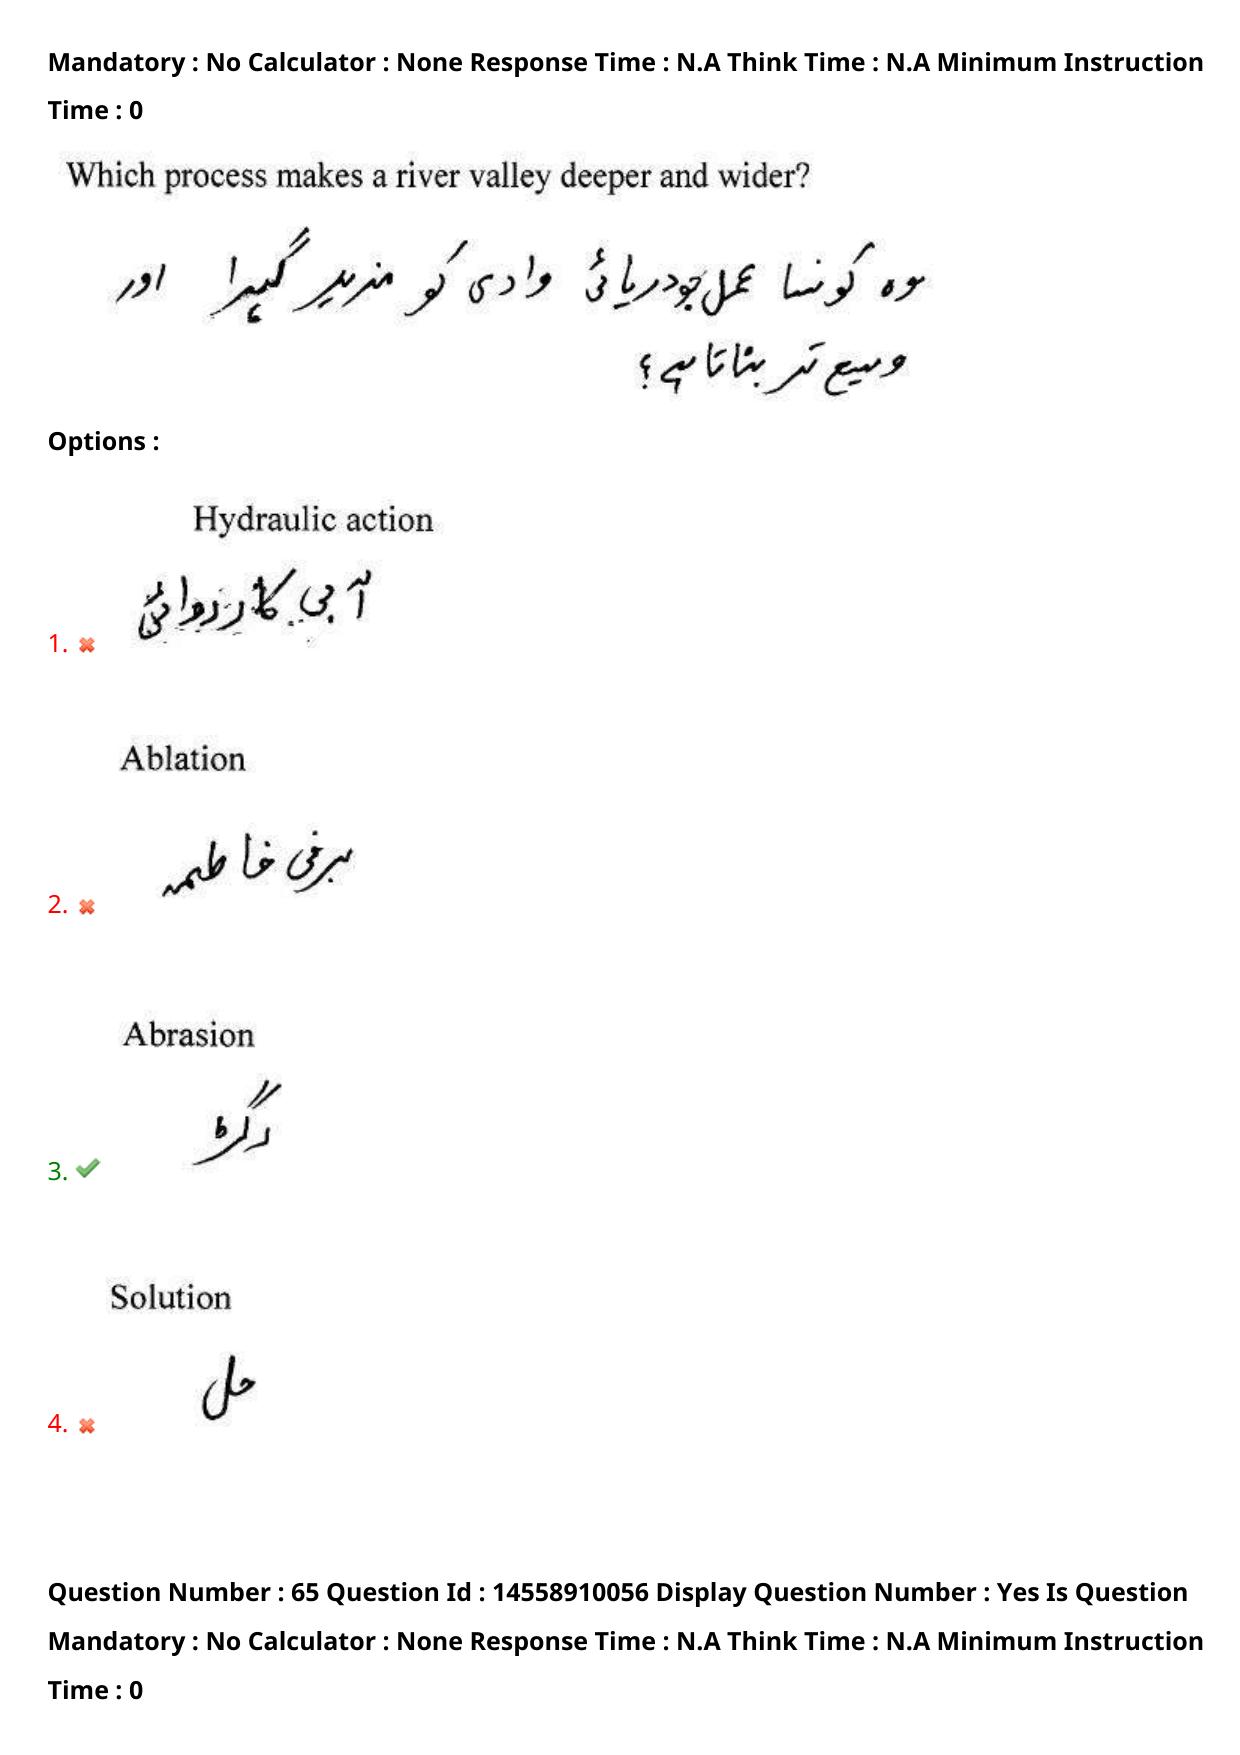 Mandatory : No Calculator : None Response Time : N.A Think Time : N.A Minimum Instruction
Time : 0
Which process makes a river valley deeper and wider?
وہ کونسا عمل جو دریائی وادی کو مزید گہرا اور
وسیع تر بناتا ہے؟
Options :
Hydraulic action
آبی کارروائی
1.
Ablation
برفی خاطمہ
2.
Abrasion
رگڑ
3.
Solution
حل
4.
Question Number : 65 Question Id : 14558910056 Display Question Number : Yes Is Question
Mandatory : No Calculator : None Response Time : N.A Think Time : N.A Minimum Instruction
Time : 0